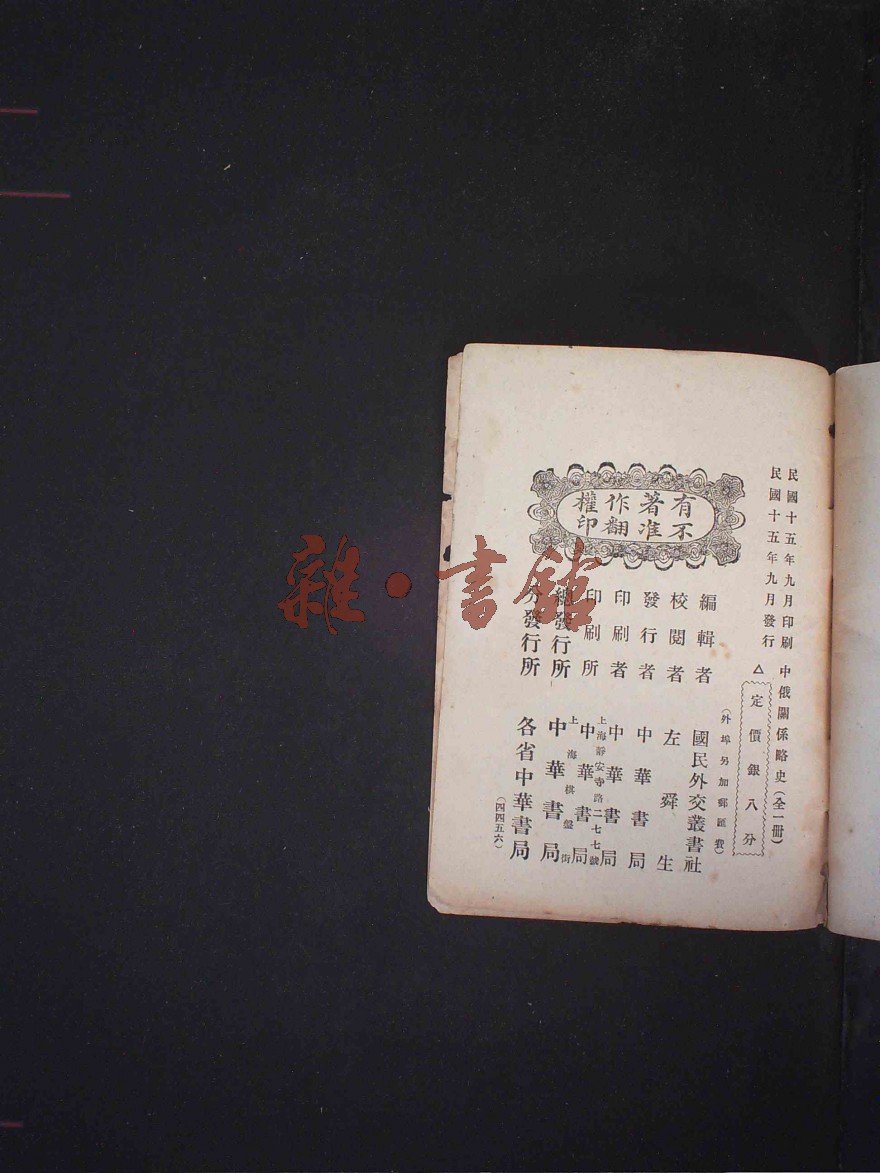 民國十五年九月印刷
民國十五年九月發行
中俄關係略史(全一冊)
△定價銀八分
(外埠另加郵匯費)
有著作權
不准翻印
編輯者 國民外交叢書社
校閱者 左舜生
發行者 中華書局
印刷者 中華書局
上海靜安寺路二七七號
印刷所 中華書局
上海棋盤街
總發行所 中華書局
分發行所 各省中華書局
(四四五六)
雜·書館